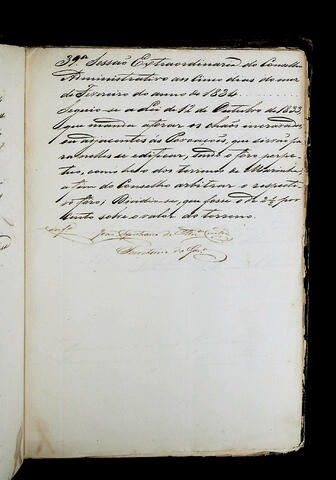 39ª Sessão Extraordinaria do Conselho
Administrativo aos Cinco dias do mez
de Fevereiro do anno de 1834.
Seguio-se a Lei de 12 de Outubro de 1833
que manda aforar os chãos encravados
ou adjacentes ás Povoações, que servão pa
ra nelles se edificar, sendo o foro perpe-
tuo, como he o dos terrenos de Marinha,
a fim do Conselho arbitrar o respecti-
vo foro; Decidio-se, que fosse o de 2½ por
Cento sobre o valor do terreno.
João
da Silva